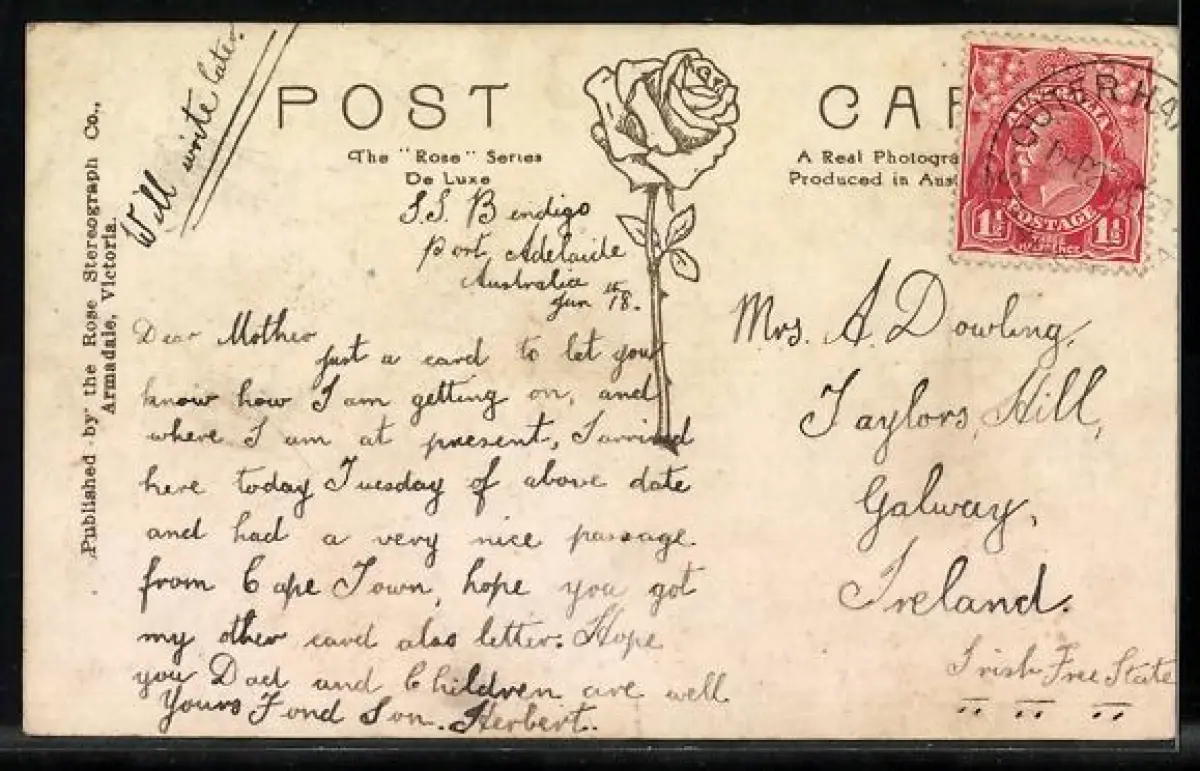 Will write later.
POST CAR
The "Rose" Series
De Luxe
A Real Photogra
Produced in Aust
Published by the Rose Stereograph Co.,
Armadale, Victoria.
AUSTRALIA
POSTAGE
1½ 1½
OUTER HA
S.S. Bendigo
Port Adelaide
Australia
Jun 18.
Dear Mother
just a card to let you
know how I am getting on, and
where I am at present, I arrived
here today Tuesday of above date
and had a very nice passage
from Cape Town, hope you got
my other card also letter. Hope
you Dad and Children are well
Yours Fond Son. Herbert.
Mrs. A. Dowling,
Taylors Hill,
Galway,
Ireland.
Irish Free State